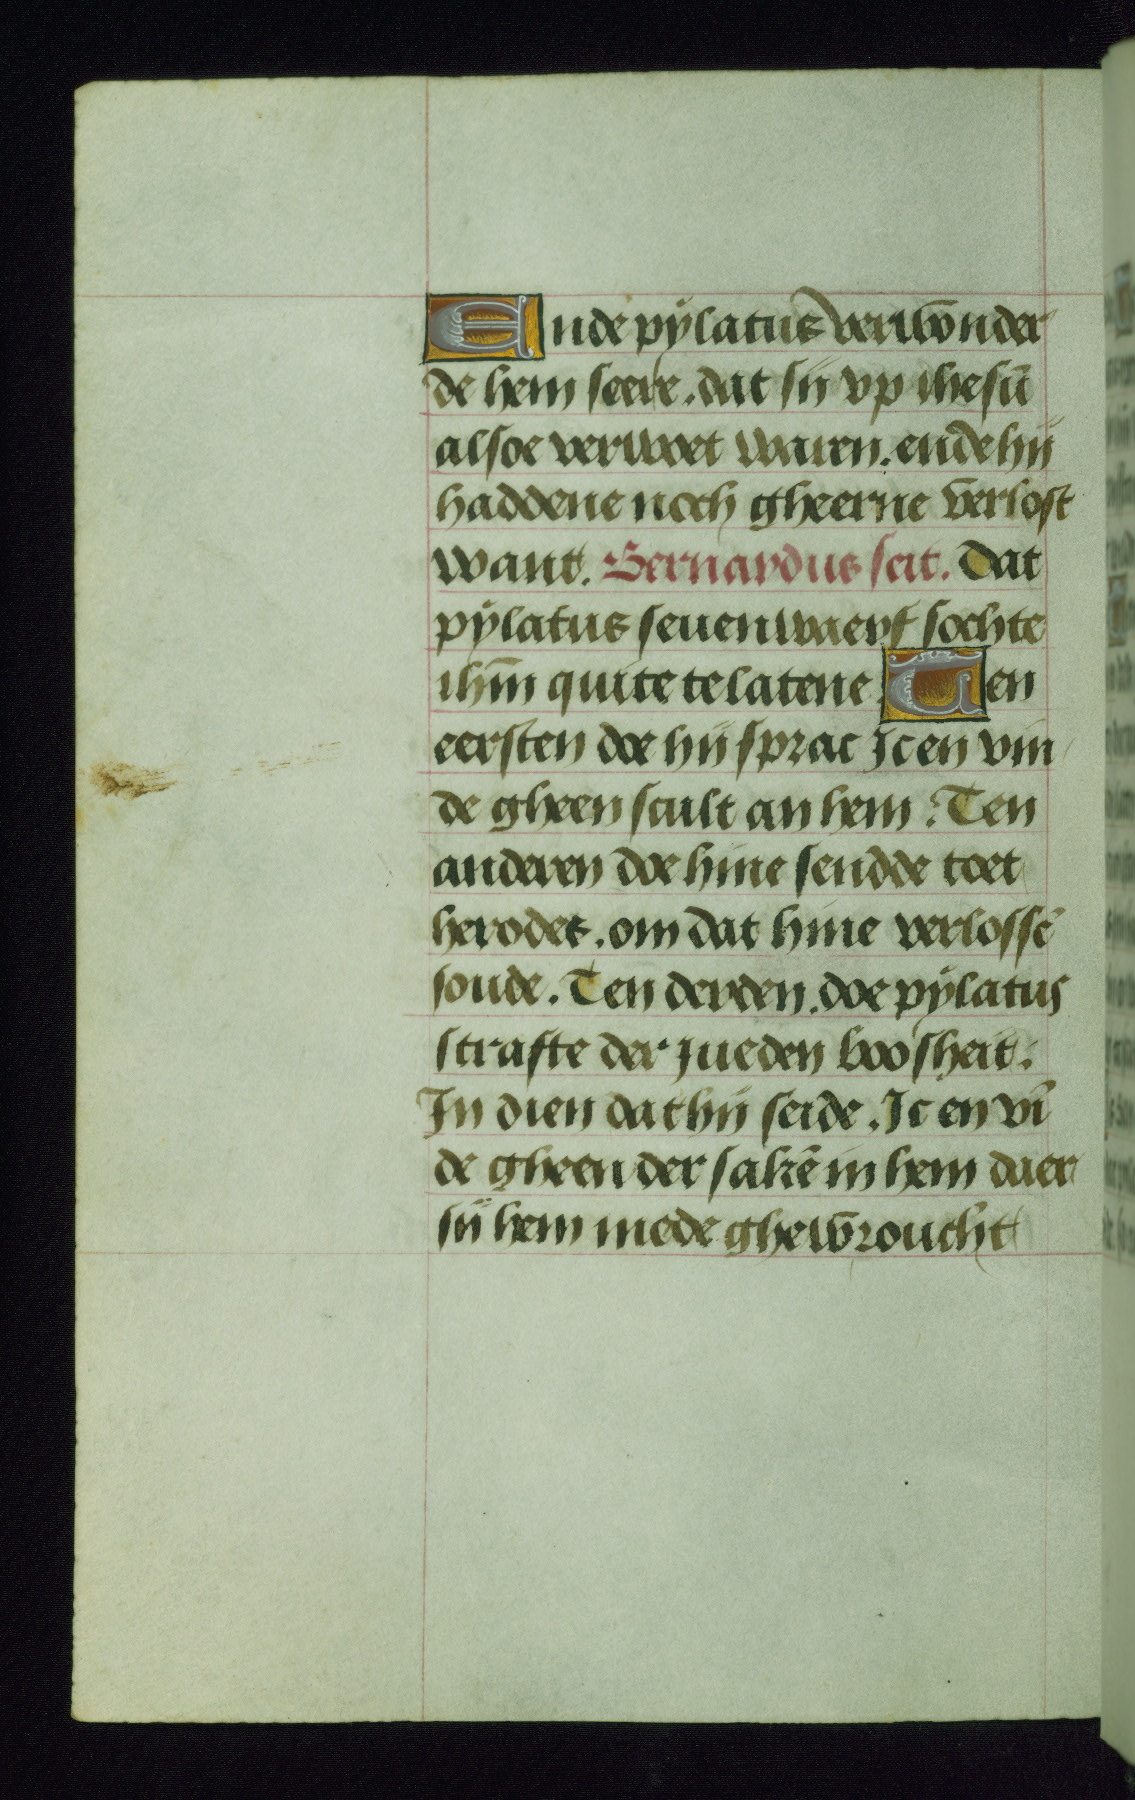 Ende pÿlatus verwōnder
de hem seere. dat sij vp ihesū
alsoe verwoet waren. ende hij
haddene noch gheerne verlost
want. Bernardus seit. Dat
pÿlatus seuenwaerf sochte
ihm̄ quite te latene. Ten
eersten doe hij sprac Ic en vin
de gheen scult an hem. Ten
anderen doe hine sendde toet
herodes. om dat hine verlossē
soude. Ten derden. doe pÿlatus
strafte der jueden boosheit.
In dien dat hij seide. Ic en vī
de gheen der sakē in hem daer
sij hem mede ghewroucht